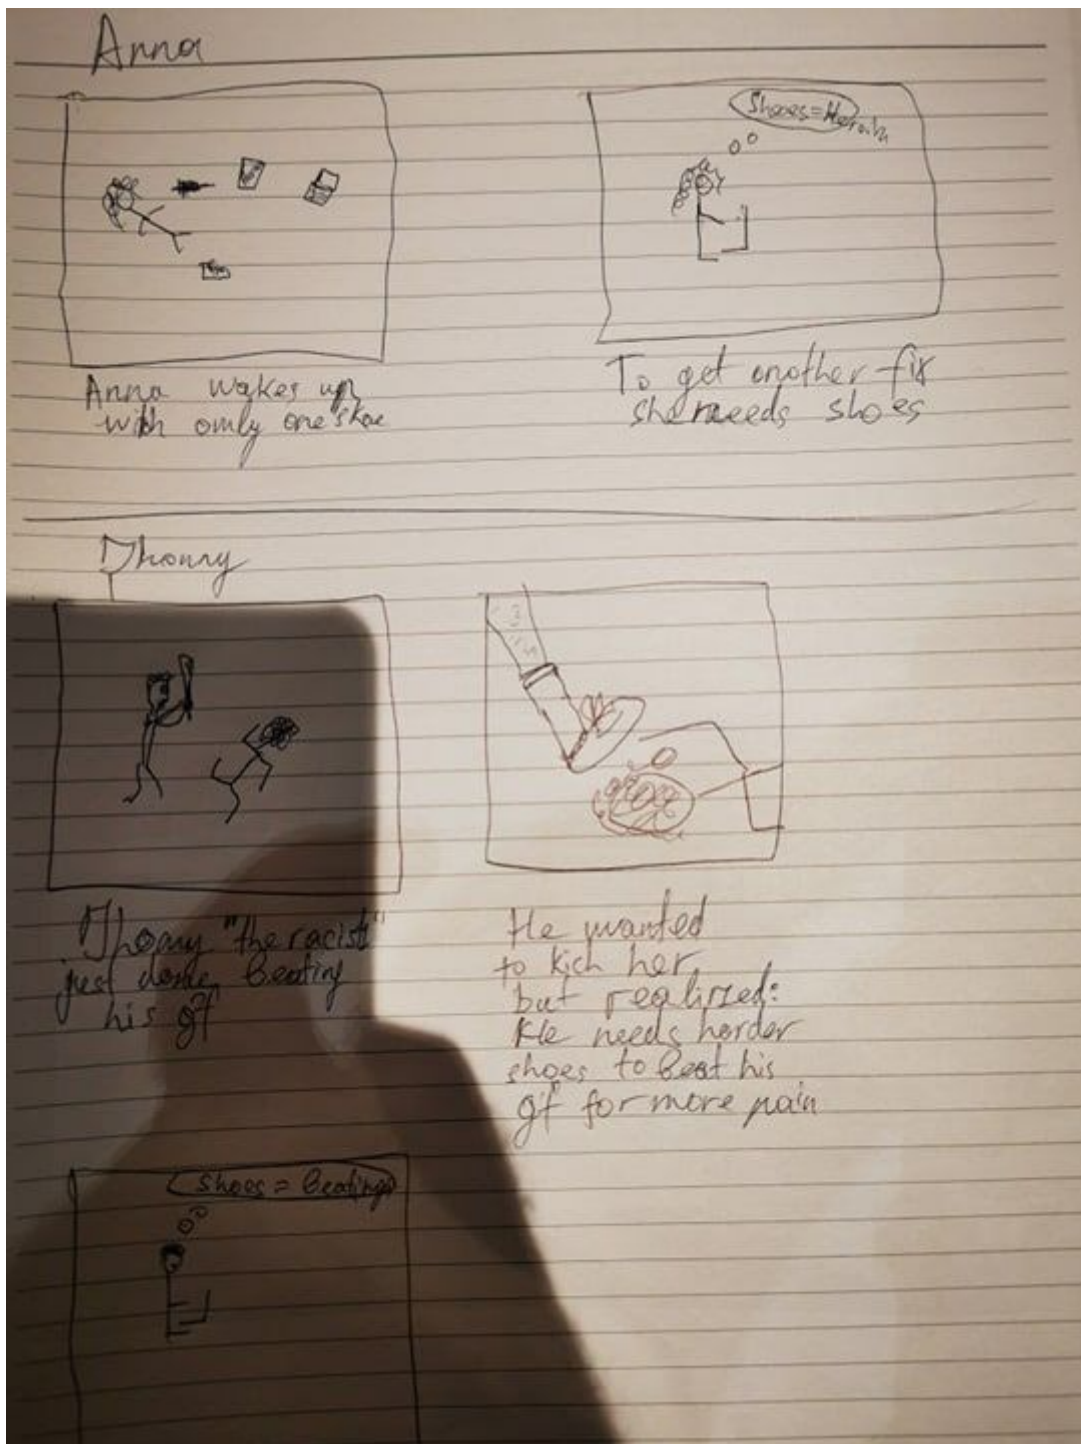 Anna
Shoes=Heroin
Anna wakes up
with only one shoe
To get another fix
she needs shoes
Jhonny
Jhonny "the racist"
just done beating
his gf
He wanted
to kich her,
but realized:
He needs harder
shoes to beat his
gf for more pain
shoes = beating